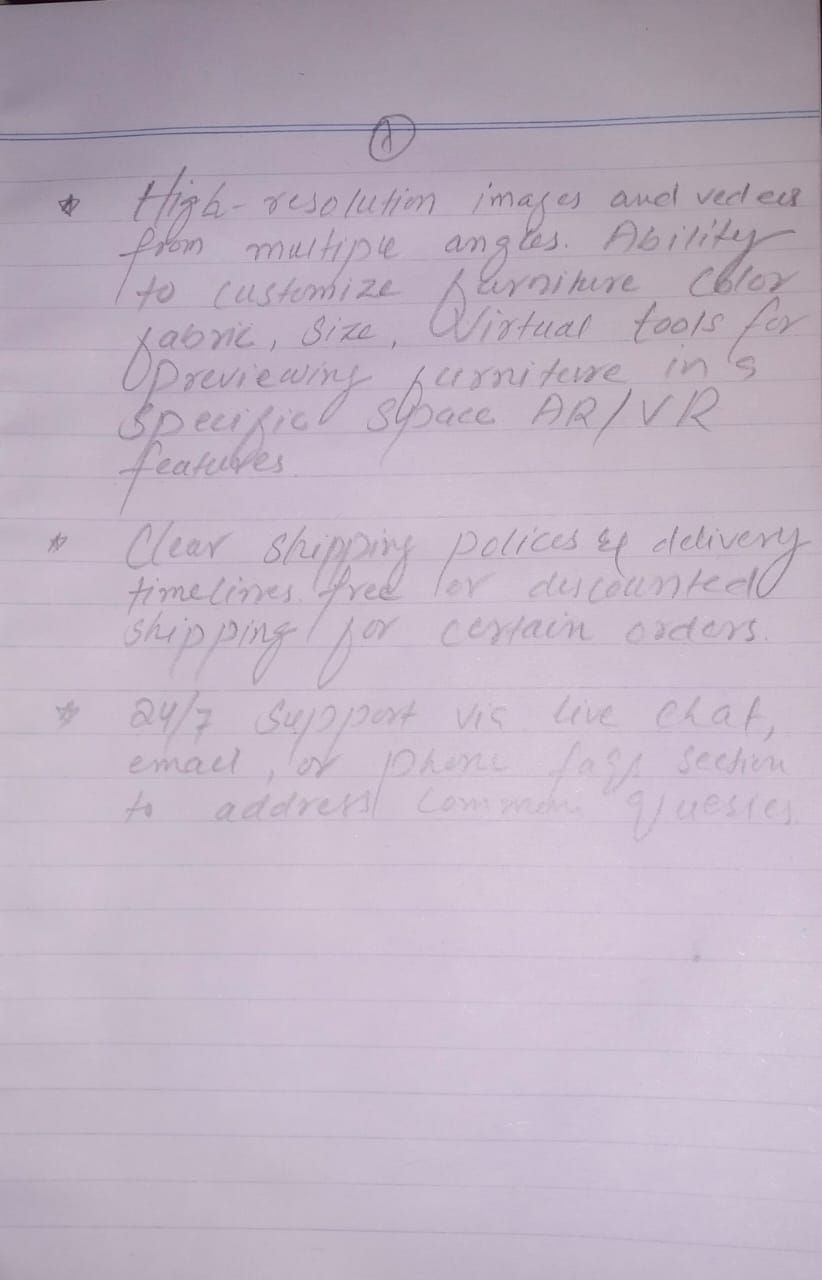 * High-resolution images and vedeos
from multiple angles. Ability
to customize furniture color
fabric, size, Virtual tools for
previewing furniture in a
specific space AR/VR
features
* Clear shipping polices & delivery
timelines. free or discounted
shipping for certain orders.
* 24/7 support via live chat,
email, or phone faqs section
to address common queries